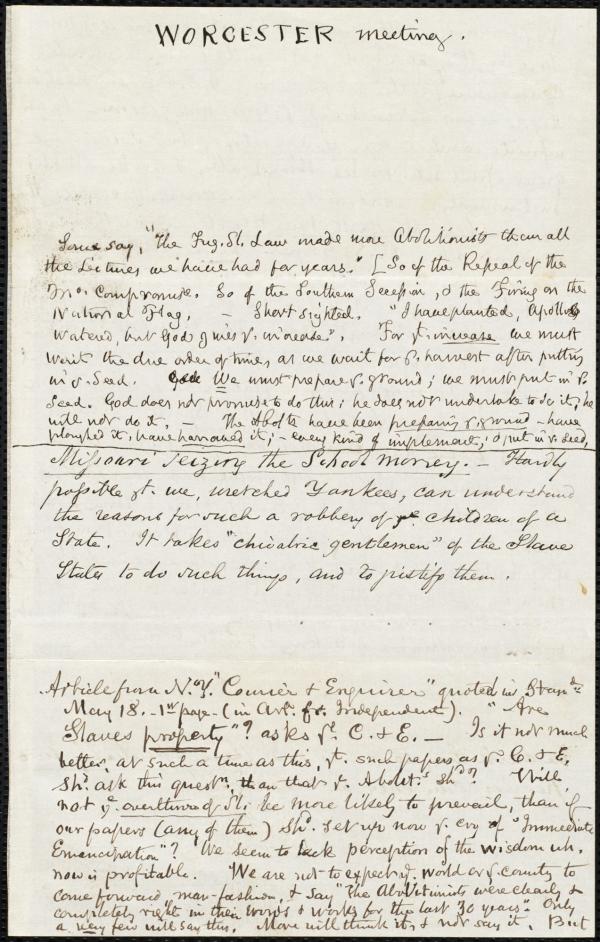 WORCESTER meeting.
Some say, "The Fug. Sl. Law made more Abolitionists than all
the Lectures we have had for years." [So of the Repeal of the
Mo. Compromise. So of the Southern Secession, & the Firing on the
National Flag. — Short sighted. "I have planted, Apollos
watered, but God gives ye. increase". For ye. increase we must
wait the due order of time, as we wait for ye. harvest after putting
in ye. seed. We must prepare ye. ground; we must put in ye.
Seed. God does not promise to do this; he does not undertake to do it; he
will not do it. — The Abolts. have been preparing ye. ground — have
ploughed it; have harrowed it; — every kind of implement; & put in ye. seed.
Missouri seizing the School money. — Hardly
possible yt. we, wretched Yankees, can understand
the reasons for such a robbery of ye children of a
State. It takes "chivalric gentlemen" of the Slave
States to do such things, and to justify them.
Article from N.Y. "Courier & Enquirer" quoted in Stand.
May 18. 1st page - (in Art. fr. Independent). "Are
Slaves property"? asks ye. C. & E. — Is it not much
better, at such a time as this, yt. such papers as ye. C. & E.
shd. ask this questn., than that ye. Abolits. shd.? Will
not ye. overthrow of Sl. be more likely to prevail, than if
our papers (any of them) shd. set up now ye. cry of "Immediate
Emancipation"? We seem to lack perception of the wisdom wh.
now is profitable. We are not to expect ye. world or ye. country to
come forward, man-fashion, & say "The Abolitionists were clearly &
completely right in their words & works for the last 30 years". Only
a very few will say this. More will think it, & not say it. But